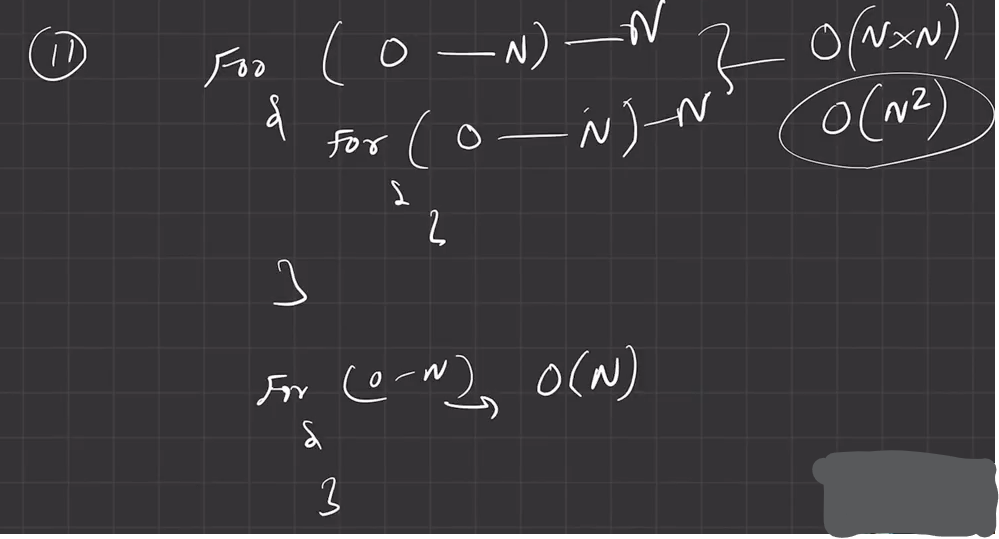 11 For ( 0 — N) — N } — O(N×N)
{ For ( 0 — N) — N O(N²)
{
}
}
For (0 - N) → O(N)
{
}